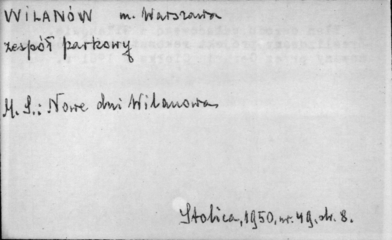 WILANÓW m. Warszawa
zespół parkowy
M. S.: Nowe dni Wilanowa
Stolica, 1950, nr. 49, str. 8.